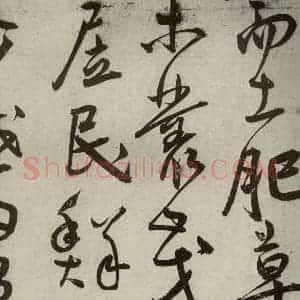 而土肥草
木叢茂
居民鮮
Shufaziliao.com